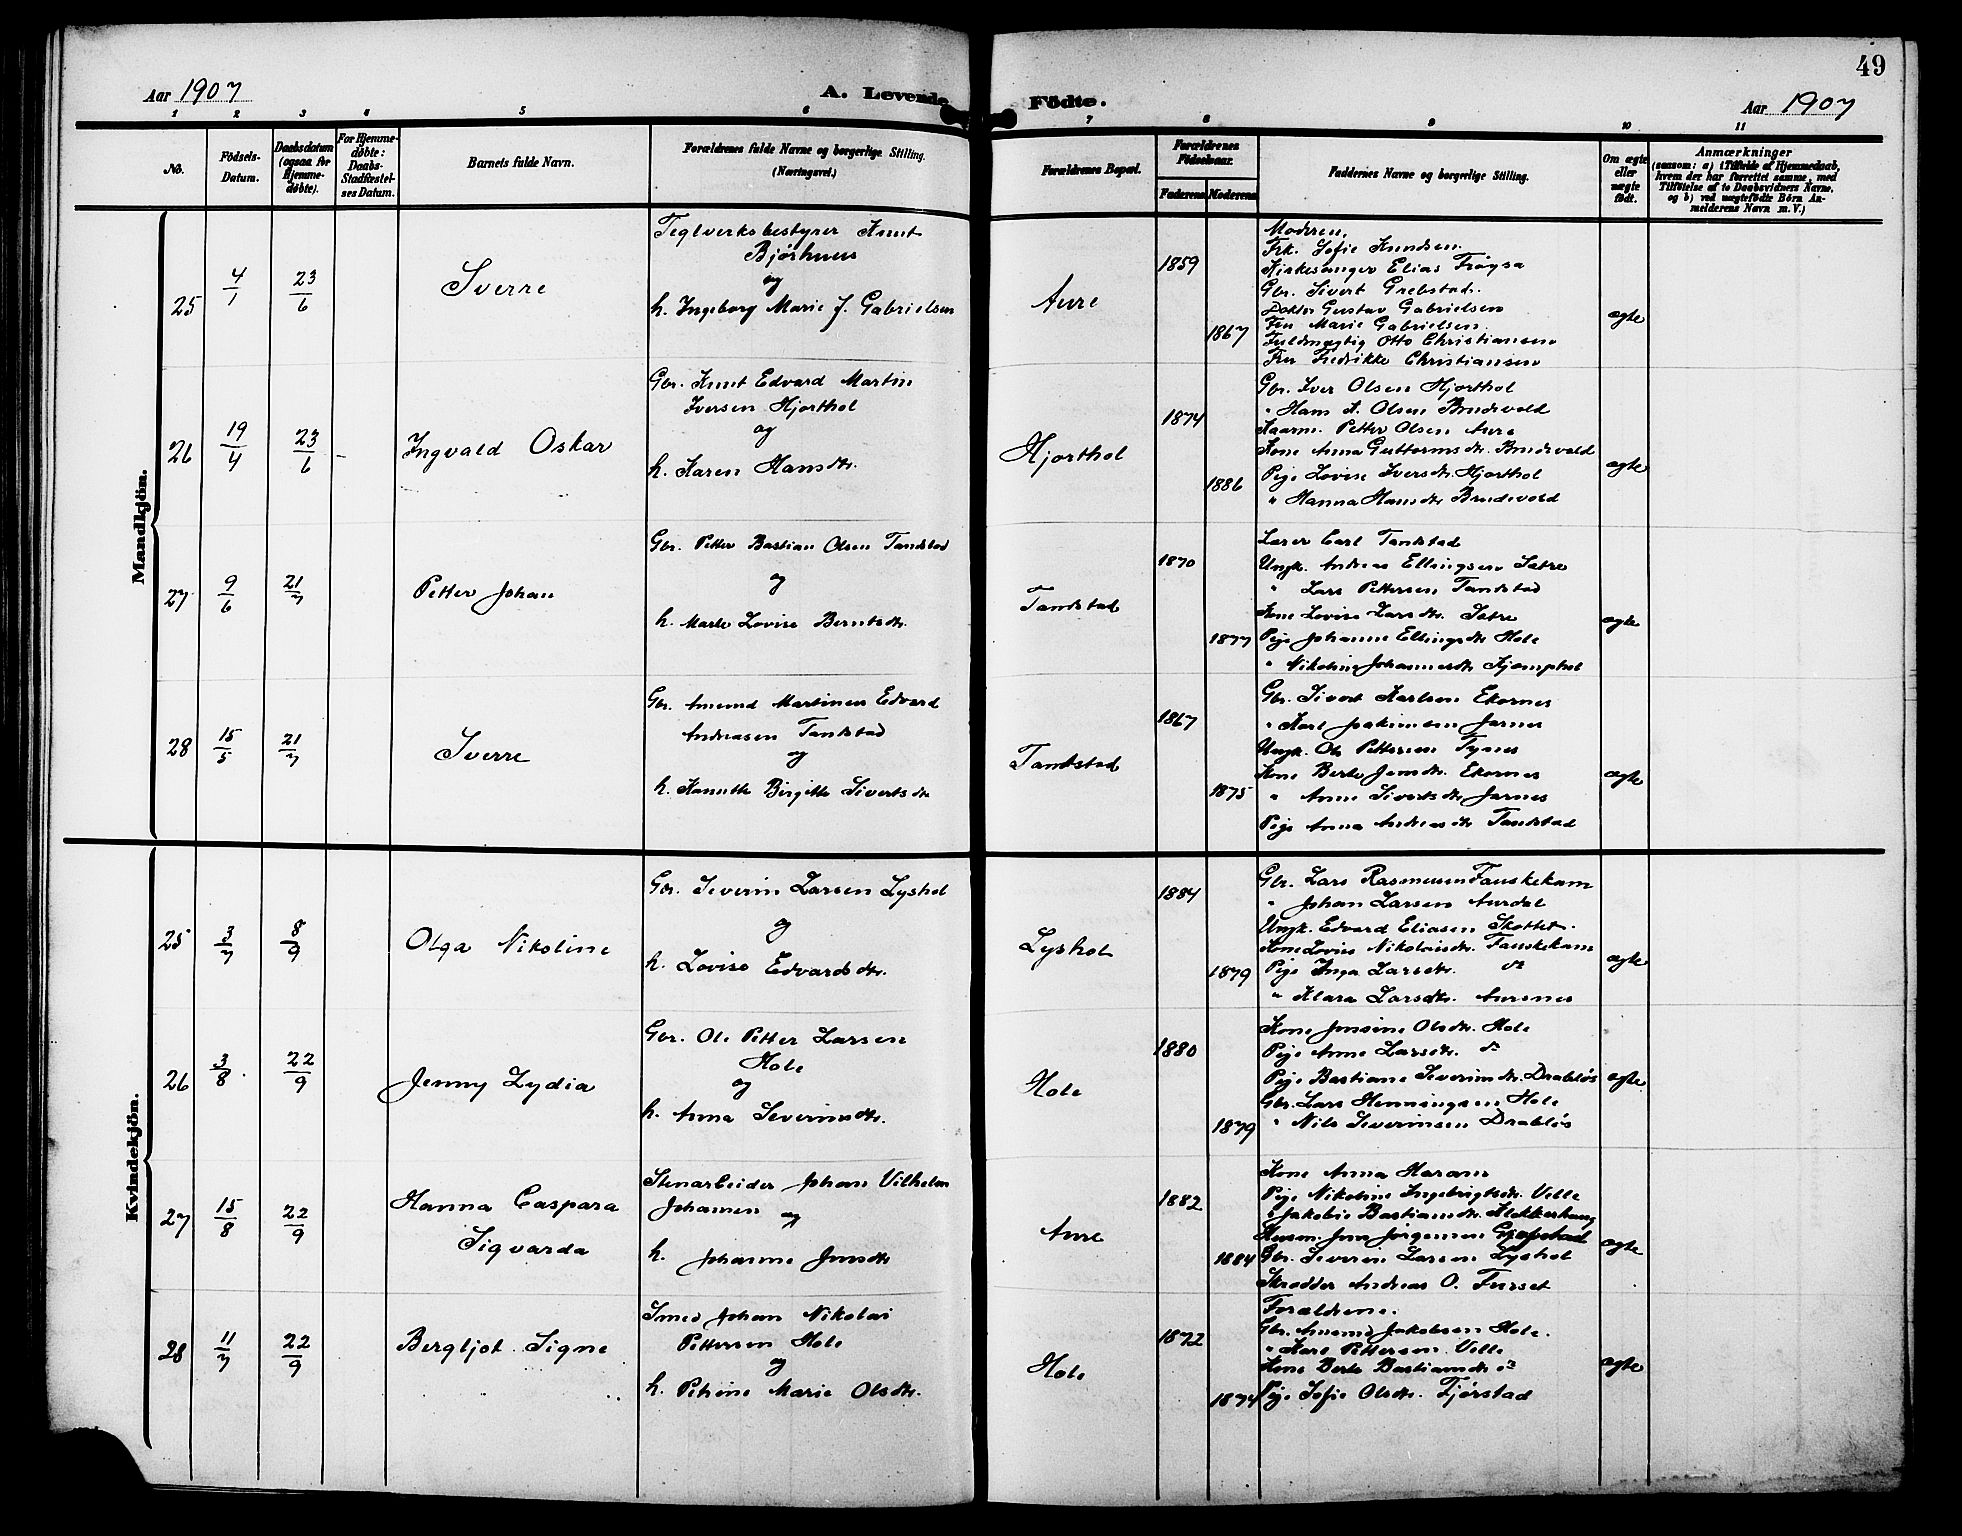 49
Aar 1907
A. Levende Födte.
Aar 1907
1 2 3 4 5 6 7 8 9 10 11
No.
Födsels-Datum.
Daabsdatum (ogsaa for Hjemme-døbte).
For Hjemme-døbte: Daabs-Stadfæstel-ses Datum.
Barnets fulde Navn.
Forældrenes fulde Navne og borgerlige Stilling. (Næringsvei.)
Forældrenes Bopæl.
Forældrenes Födselsaar.
Faderens Moderens
Faddernes Navne og borgerlige Stilling.
Om ægte eller uægte født.
Anmærkninger
(saasom: a) i Tilfælde af Hjemmedaab, hvem der har forrettet samme, med Tilföielse af to Daabsvidners Navne, og b) ved uægtefødte Börn An-melderens Navn m. V.)
Mandkjön.
25 4/1 23/6 Sverre
Teglverksbestyrer Knut
Bjørhuus
og
h. Ingeborg Marie J. Gabrielsen
Aure
1859
1867
Moderen,
Frk. Sofie Knudsen.
Kirkesanger Elias Frøysa
Gbr. Sivert Grebstad.
Doktor Gustav Gabrielsen
Fru Marie Gabrielsen.
Fuldmægtig Otto Christiansen
Fru Fredrikke Christiansen
ægte
26 19/4 23/6 - Ingvald Oskar
Gbr. Knut Edvard Martin
Iversen Hjorthol
og
h. Karen Hansdtr.
Hjorthol
1874
1886
Gbr. Iver Olsen Hjorthol
" Hans A. Olsen Brudevold
Kaarm. Petter Olsen Aure
Kone Anna Guttormsdtr. Brudevold
Pige Lovise Iversdtr. Hjorthol
" Hanna Hansdtr Brudevold
ægte
27 9/6 21/7 Petter Johan
Gbr. Petter Bastian Olsen Tandstad
og
h. Marte Lovise Berntsdtr.
Tandstad
1870
1877
Lærer Carl Tandstad
Ungk. Andreas Ellingsen Sætre
" Lars Pettersen Tandstad
Kone Lovise Larsdtr. Sætre
Pige Johanne Ellingsdtr Hole
" Nikoline Johannesdtr Kjemphol
ægte
28 15/5 21/7 Sverre
Gbr. Amund Martinus Edvard
Andreasen Tandstad
og
h. Kanutte Birgitte Sivertsdtr
Tandstad
1867
1875
Gbr. Sivert Karlsen Ekornes
" Karl Joakimsen Jarnes
Ungk. Ole Pettersen Tynes
Kone Berte Jensdtr. Ekornes
" Anne Sivertsdtr Jarnes
Pige Anna Andreasdtr Tandstad
ægte
Kvindekjön.
25 3/7 8/9 Olga Nikoline
Gbr. Severin Larsen Lyshol
og
h. Lovise Edvardsdtr.
Lyshol
1884
1879
Gbr. Lars Rasmussen Fauskekam
" Johan Larsen Aurdal
Ungk. Edvard Eliasen Skottet.
Kone Lovise Nikolaisdtr. Fauskekam
Pige Inga Larsdtr. do
" Klara Larsdtr. Aursnes
ægte
26 3/8 22/9 Jenny Lydia
Gbr. Ole Petter Larsen
Hole
og
h. Anna Severinsdtr.
Hole
1880
1879
Kone Jensine Olsdtr. Hole
Pige Anne Larsdtr. do
Pige Bastiane Severinsdtr. Drabløs
Gbr. Lars Henningsen Hole
" Nils Severinsen Drabløs
ægte
27 15/8 22/9 Hanna Caspara
Sigvarda
Stenarbeider Johan Vilhelm
Johansen og
h. Johanne Jensdtr
Aure
1882
1884
Kone Anna Haram
Pige Nikoline Ingebrigtsdtr. Velle
" Jakobie Bastiansdtr. Klokkerhaug
Husm. Jens Jørgensen Gjøfstad
Gbr. Severin Larsen Lyshol
Skrædder Andreas O. Furset
ægte
28 11/7 22/9 Bergljot Signe
Smed Johan Nikolai
Pettersen Hole
og
h. Petrine Marie Olsdtr.
Hole
1872
1874
Forældrene.
Gbr. Amund Jakobsen Hole.
" Karl Pettersen Velle
Kone Berte Bastiansdtr do
Pige Sofie Olsdtr. Fjørstad
ægte